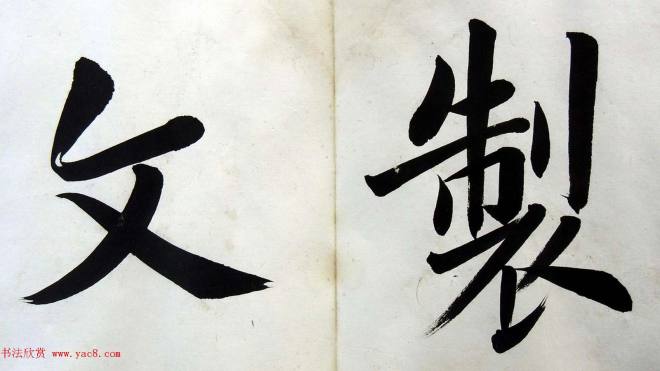 製
文
书法欣赏 www.yac8.com